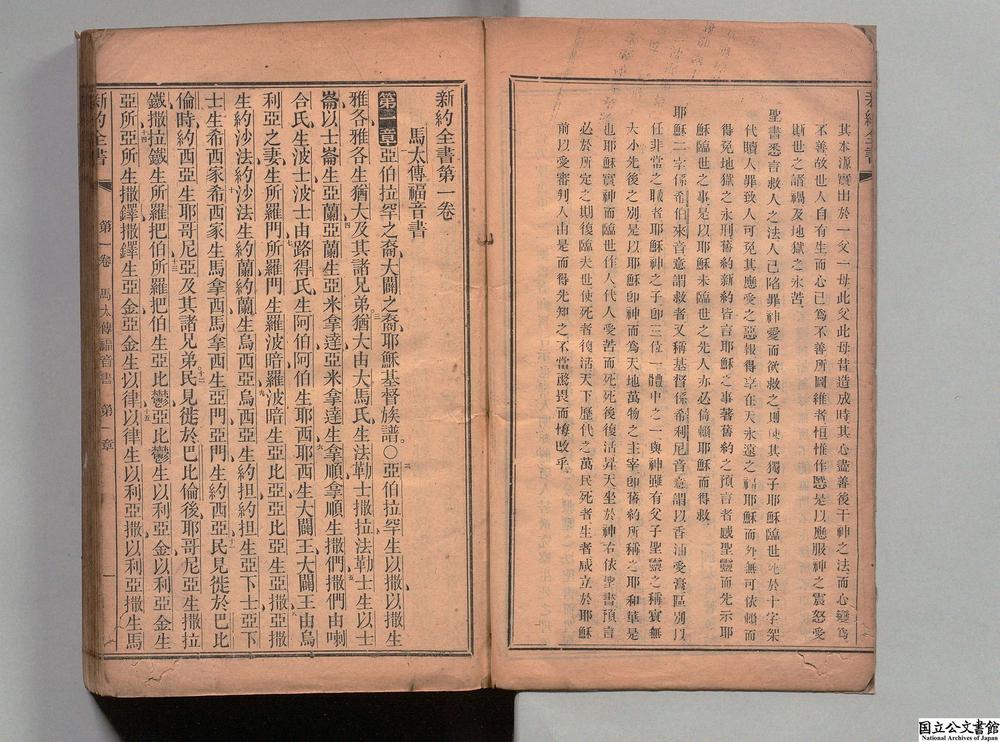 其本源實出於一父一母此父此母昔造成時其心盡善後干神之法而心變爲
不善故世人自有生而心已爲不善所圖維者恒惟作愆是以應服神之震怒受
斯世之諸禍及地獄之永苦
聖書悉言救人之法人已陷罪神愛而欲救之則使其獨子耶穌臨世死於十字架
代贖人罪致人可免其應受之惡報得享在天永遠之福耶穌而外無可依賴而
得免地獄之永刑舊約新約皆言耶穌之事著舊約之預言者感聖靈而先示耶
穌臨世之事是以耶穌未臨世之先人亦必倚賴耶穌而得救
耶穌二字係希伯來音意謂救者又稱基督係希利尼音意謂以香油愛膏區別以
任非常之職者耶穌神之子卽三位一體中之一與神雖有父子聖靈之稱實無
大小先後之別是以耶穌卽神而爲天地萬物之主宰卽舊約所稱之耶和華是
也耶穌實神而臨世作人代人受苦而死死後復活昇天坐於神右依聖書預言
必於所定之期復臨夫世使死者復活天下歷代之萬民死者生者咸立於耶穌
前以受審判人由是而得先知之不當驚畏而悔改乎
新約全書
新約全書第一卷
馬太傳福音書
第一章亞伯拉罕之裔大闢之裔耶穌基督族譜○二亞伯拉罕生以撒以撒生
雅各雅各生猶大及其諸兄弟三猶大由大馬氏生法勒士撒拉法勒士生以士
崙以士崙生亞蘭四亞蘭生亞米拿達亞米拿達生拿順拿順生撒們五撒們由喇
合氏生波士波士由路得氏生阿伯阿伯生耶西六耶西生大闢王大闢王由烏
利亞之妻生所羅門七所羅門生羅波暗羅波暗生亞比亞亞比亞生亞撒八亞撒
生約沙法約沙法生約蘭約蘭生烏西亞九烏西亞生約担約担生亞下士亞下
士生希西家十希西家生馬拿西馬拿西生亞門亞門生約西亞十一民見徙於巴比
倫時約西亞生耶哥尼亞及其諸兄弟十二民見徙於巴比倫後耶哥尼亞生撒拉
鐵撒拉鐵生所羅把伯十三所羅把伯生亞比鬱亞比鬱生以利亞金以利亞金生
亞所十四亞所生撒鐸撒鐸生亞金亞金生以律十五以律生以利亞撒以利亞撒生馬
新約全書 第一卷 馬太傳福音書 第一章 一
国立公文書館
National Archives of Japan